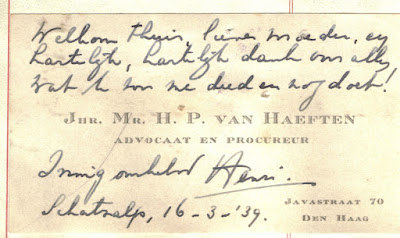 Welkom thuis, lieve moeder, en
hartelijk, hartelijk dank voor alles,
wat U voor me deed en nog doet!
JHR. MR. H. P. VAN HAEFTEN
ADVOCAAT EN PROCUREUR
Innig omhelsd Henri.
Schatzalp, 16-3-'39.
JAVASTRAAT 70
DEN HAAG